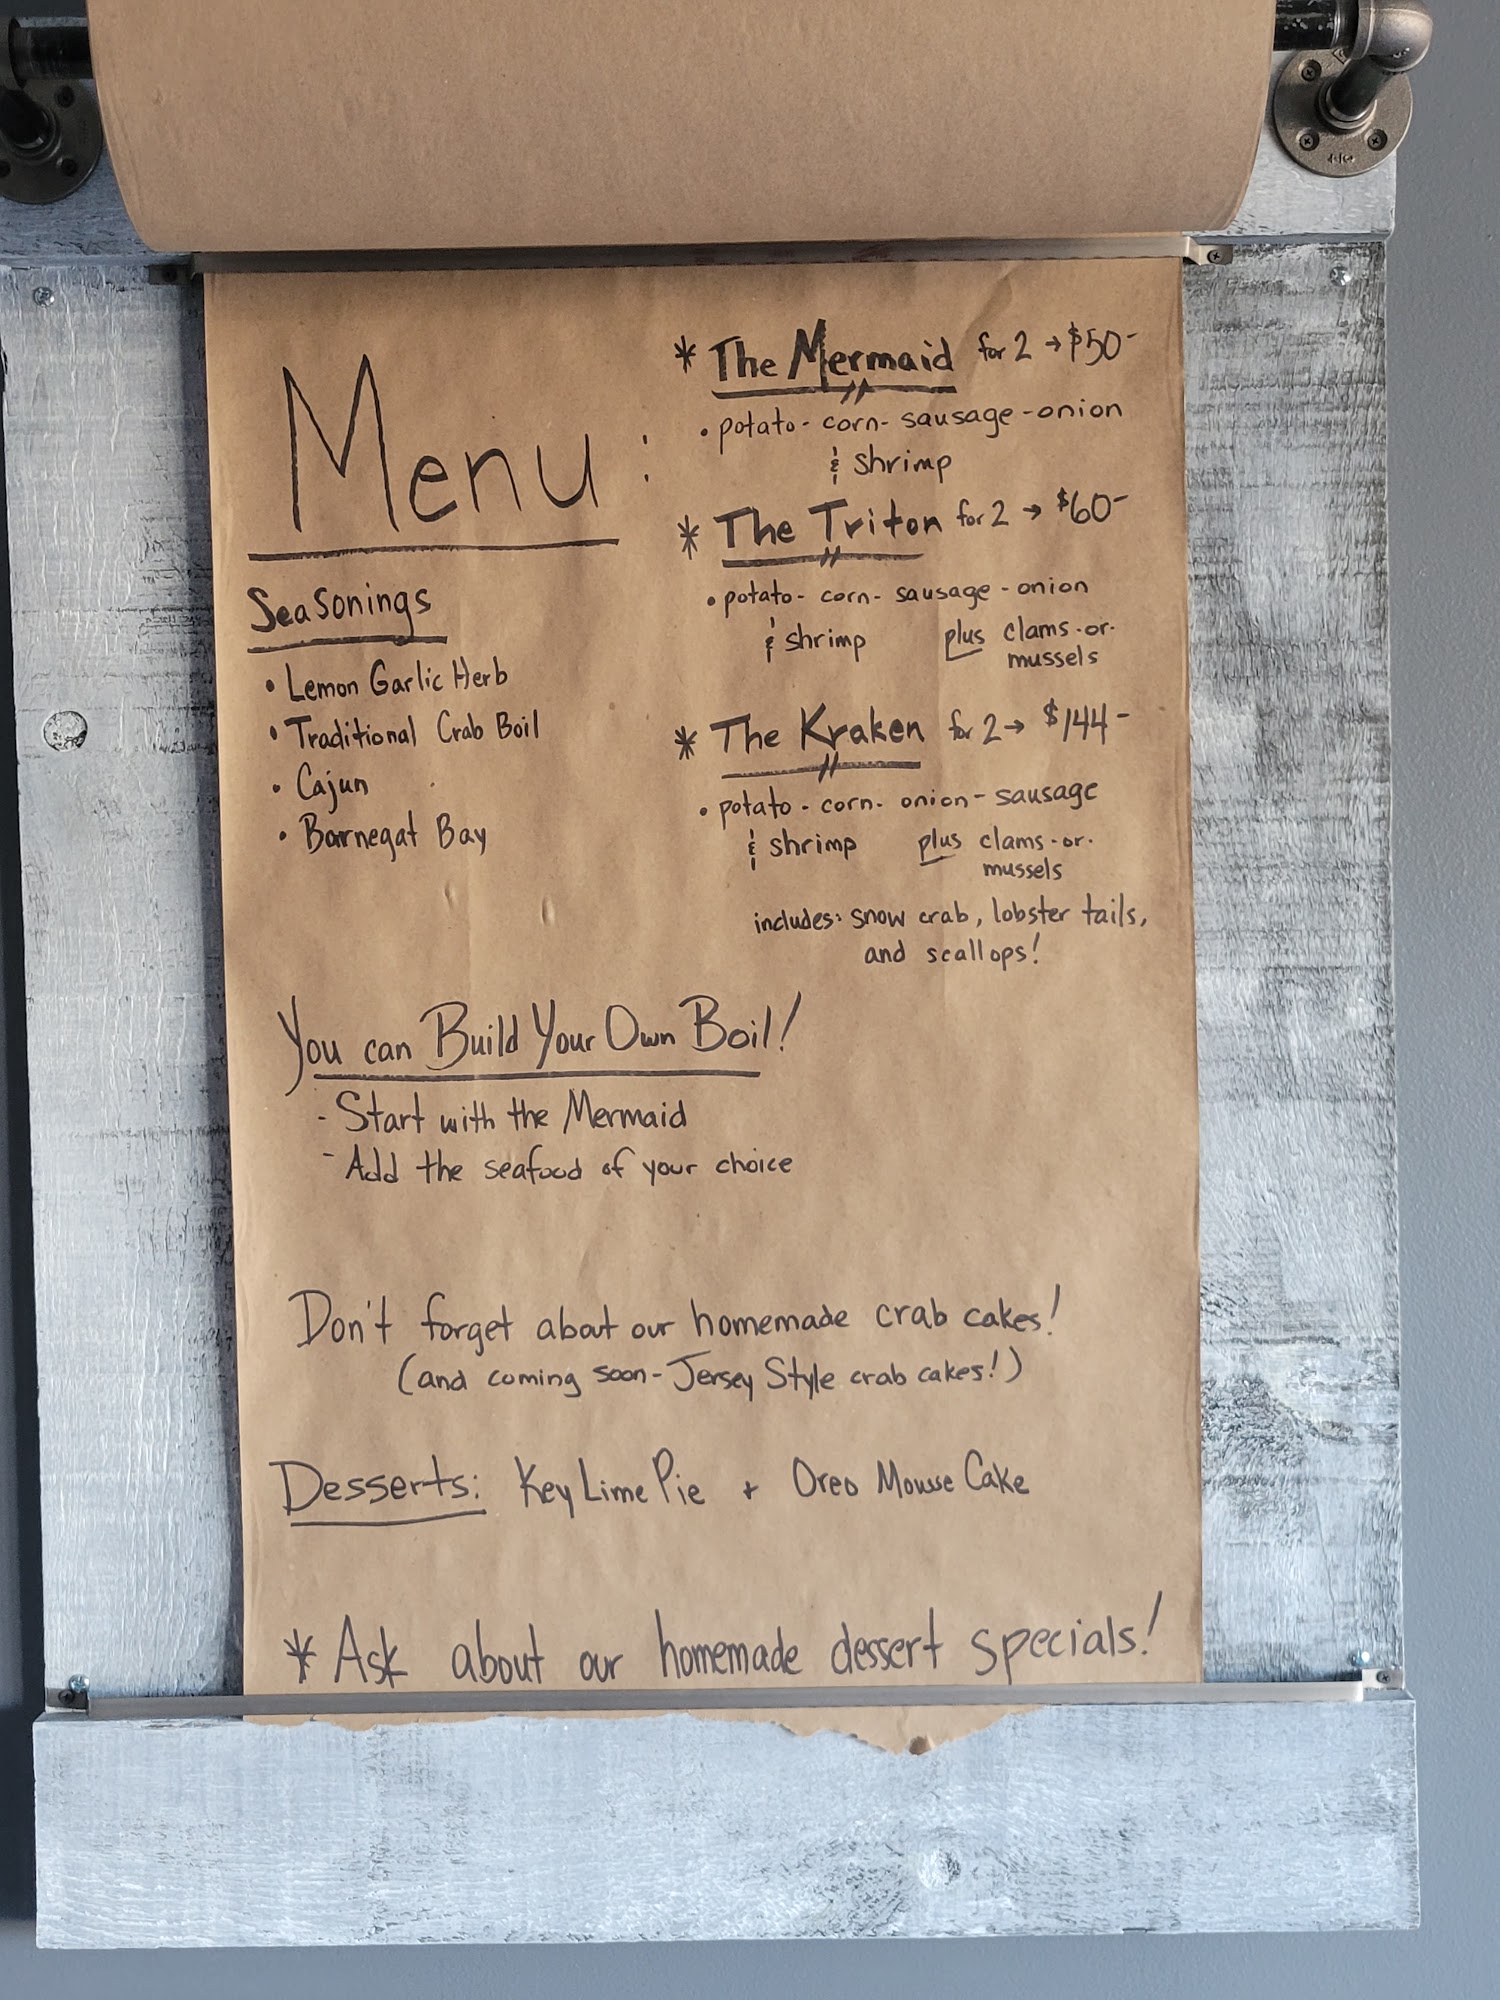 Menu:
Seasonings
• Lemon Garlic Herb
• Traditional Crab Boil
• Cajun
• Barnegat Bay
* The Mermaid for 2 → $50-
• potato - corn - sausage - onion
& shrimp
* The Triton for 2 → $60-
• potato - corn - sausage - onion
& shrimp plus clams -or-
mussels
* The Kraken for 2 → $144-
• potato - corn - onion - sausage
& shrimp plus clams -or-
mussels
includes: snow crab, lobster tails,
and scallops!
You can Build Your Own Boil!
- Start with the Mermaid
- Add the seafood of your choice
Don't forget about our homemade crab cakes!
(and coming soon - Jersey Style crab cakes!)
Desserts: Key Lime Pie + Oreo Mousse Cake
* Ask about our homemade dessert specials!